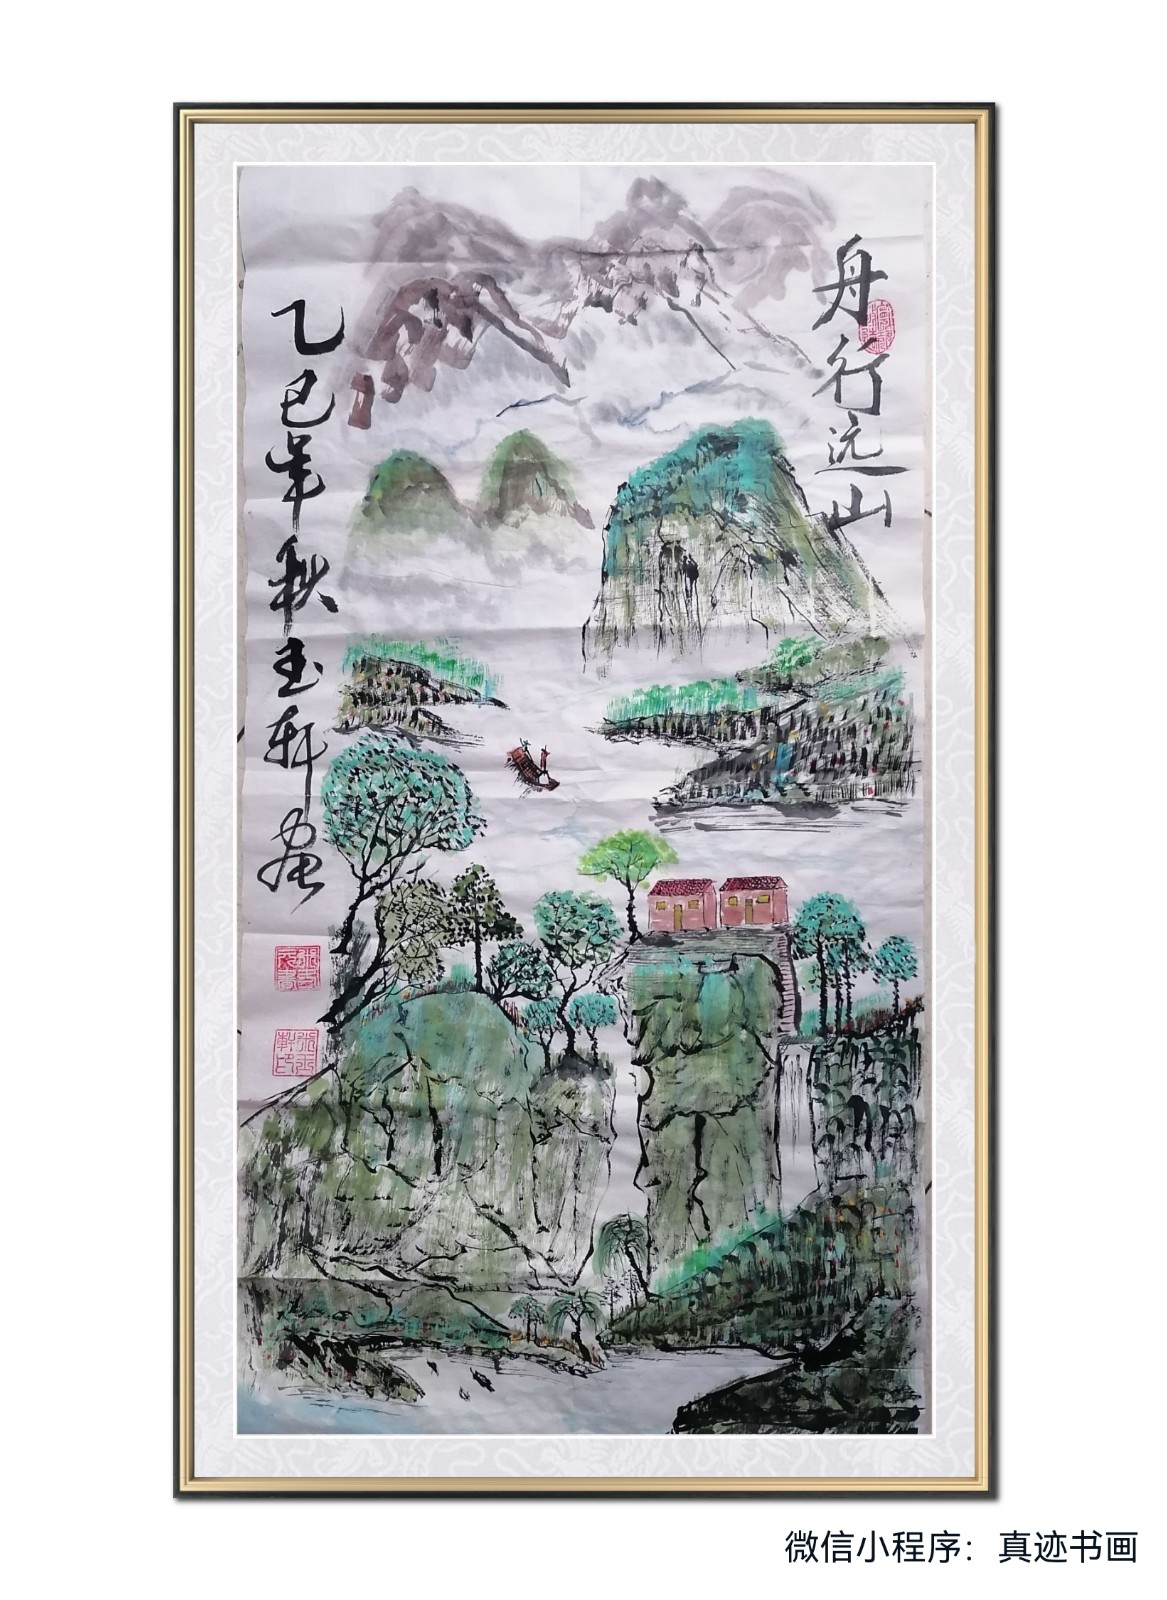 舟行远山
乙巳年秋玉轩画
微信小程序：真迹书画